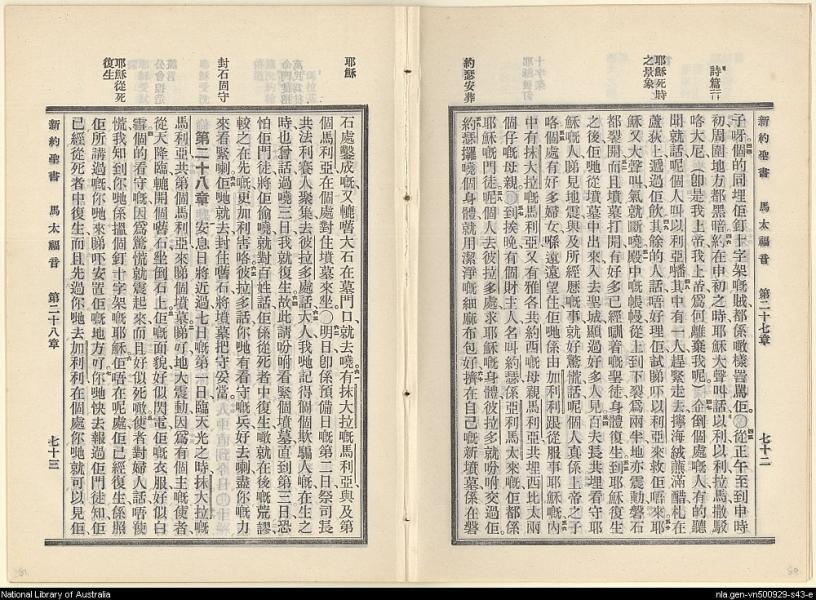 新約聖書 馬太福音 第二十七章 七十二
詩篇
耶穌死時之景象
約瑟安葬
子呀個的同埋佢釘十字架嘅賊都係噉樣詈罵佢○從正午至到申時
初周圍地方都黑暗約在申初之時耶穌大聲叫話以利以利拉馬撒駁
咯大尼〔卽是我上帝我上帝爲何離棄我呢〕企倒個處嘅人有的聽
聞就話呢個人叫以利亞嚹其中有一人趕緊走去擰海絨蘸滿醋札在
蘆荻上遞過佢飲其餘的人話唔好理佢試睇吓以利亞來救佢唔來耶
穌又大聲叫氣就斷嘵殿中嘅帳幔從上到下裂爲兩半地亦震動磐石
都裂開而且墳墓打開有好多已經瞓着嘅聖徒身體復生到耶穌復生
之後佢哋從墳墓中出來入去聖城顯過好多人見百夫長共埋看守耶
穌嘅人睇見地震與及所經歷嘅事就好驚慌話呢個人眞係上帝之子
咯個處有好多婦女喺遠遠望住佢哋係由加利利跟從服事耶穌嘅內
中有抹大拉嘅馬利亞又有雅各共約西嘅母親馬利亞共埋西比太兩
個仔嘅母親○到挨晚有個財主人名叫約瑟係亞利馬太來嘅佢都係
耶穌嘅門徒呢個人去彼拉多處求耶穌嘅身體彼拉多就吩咐交過佢
約瑟攞嘵個身體就用潔淨嘅細麻布包好擠在自己嘅新墳墓係在磐
耶穌
封石固守
耶穌從死復生
石處鑿成嘅又轆嚿大石在墓門口就去嘵有抹大拉嘅馬利亞與及第
個馬利亞在個處對住墳墓來坐○明日卽係預備日嘅第二日祭司長
共法利賽人聚集去彼拉多處話大人我哋記得個個欺騙人嘅在生之
時也曾話過嘵三日我就復生故此請吩咐看緊個墳墓直到第三日恐
怕佢門徒將佢偷嘵就對百姓話佢係從死者中復生噉就在後嘅荒謬
較之在先嘅更加利害咯彼拉多話你哋有看守嘅兵好去喇盡你嘅力
來看緊喇佢哋就去封住嚿石將墳墓把守安當
第二十八章 安息日將近過七日嘅第一日臨天光之時抹大拉嘅
馬利亞共第個馬利亞來睇個墳墓睇好地大震動因爲有個主嘅使者
從天降臨轆開個嚿石坐倒石上佢嘅面貌好似閃電佢嘅衣服好似白
雪個的看守嘅因爲驚慌就震起來而且好似死噉使者對婦人話唔使
慌我知到你哋係搵個釘十字架嘅耶穌佢唔在呢處佢已經復生係照
佢所講過嘅你哋來睇吓安置佢嘅地方好你哋快去報過佢門徒知佢
已經從死者中復生而且先過你哋去加利利在個處你哋就可以見佢
新約聖書 馬太福音 第二十八章 七十三
National Library of Australia
nla.gen-vn500929-s43-e